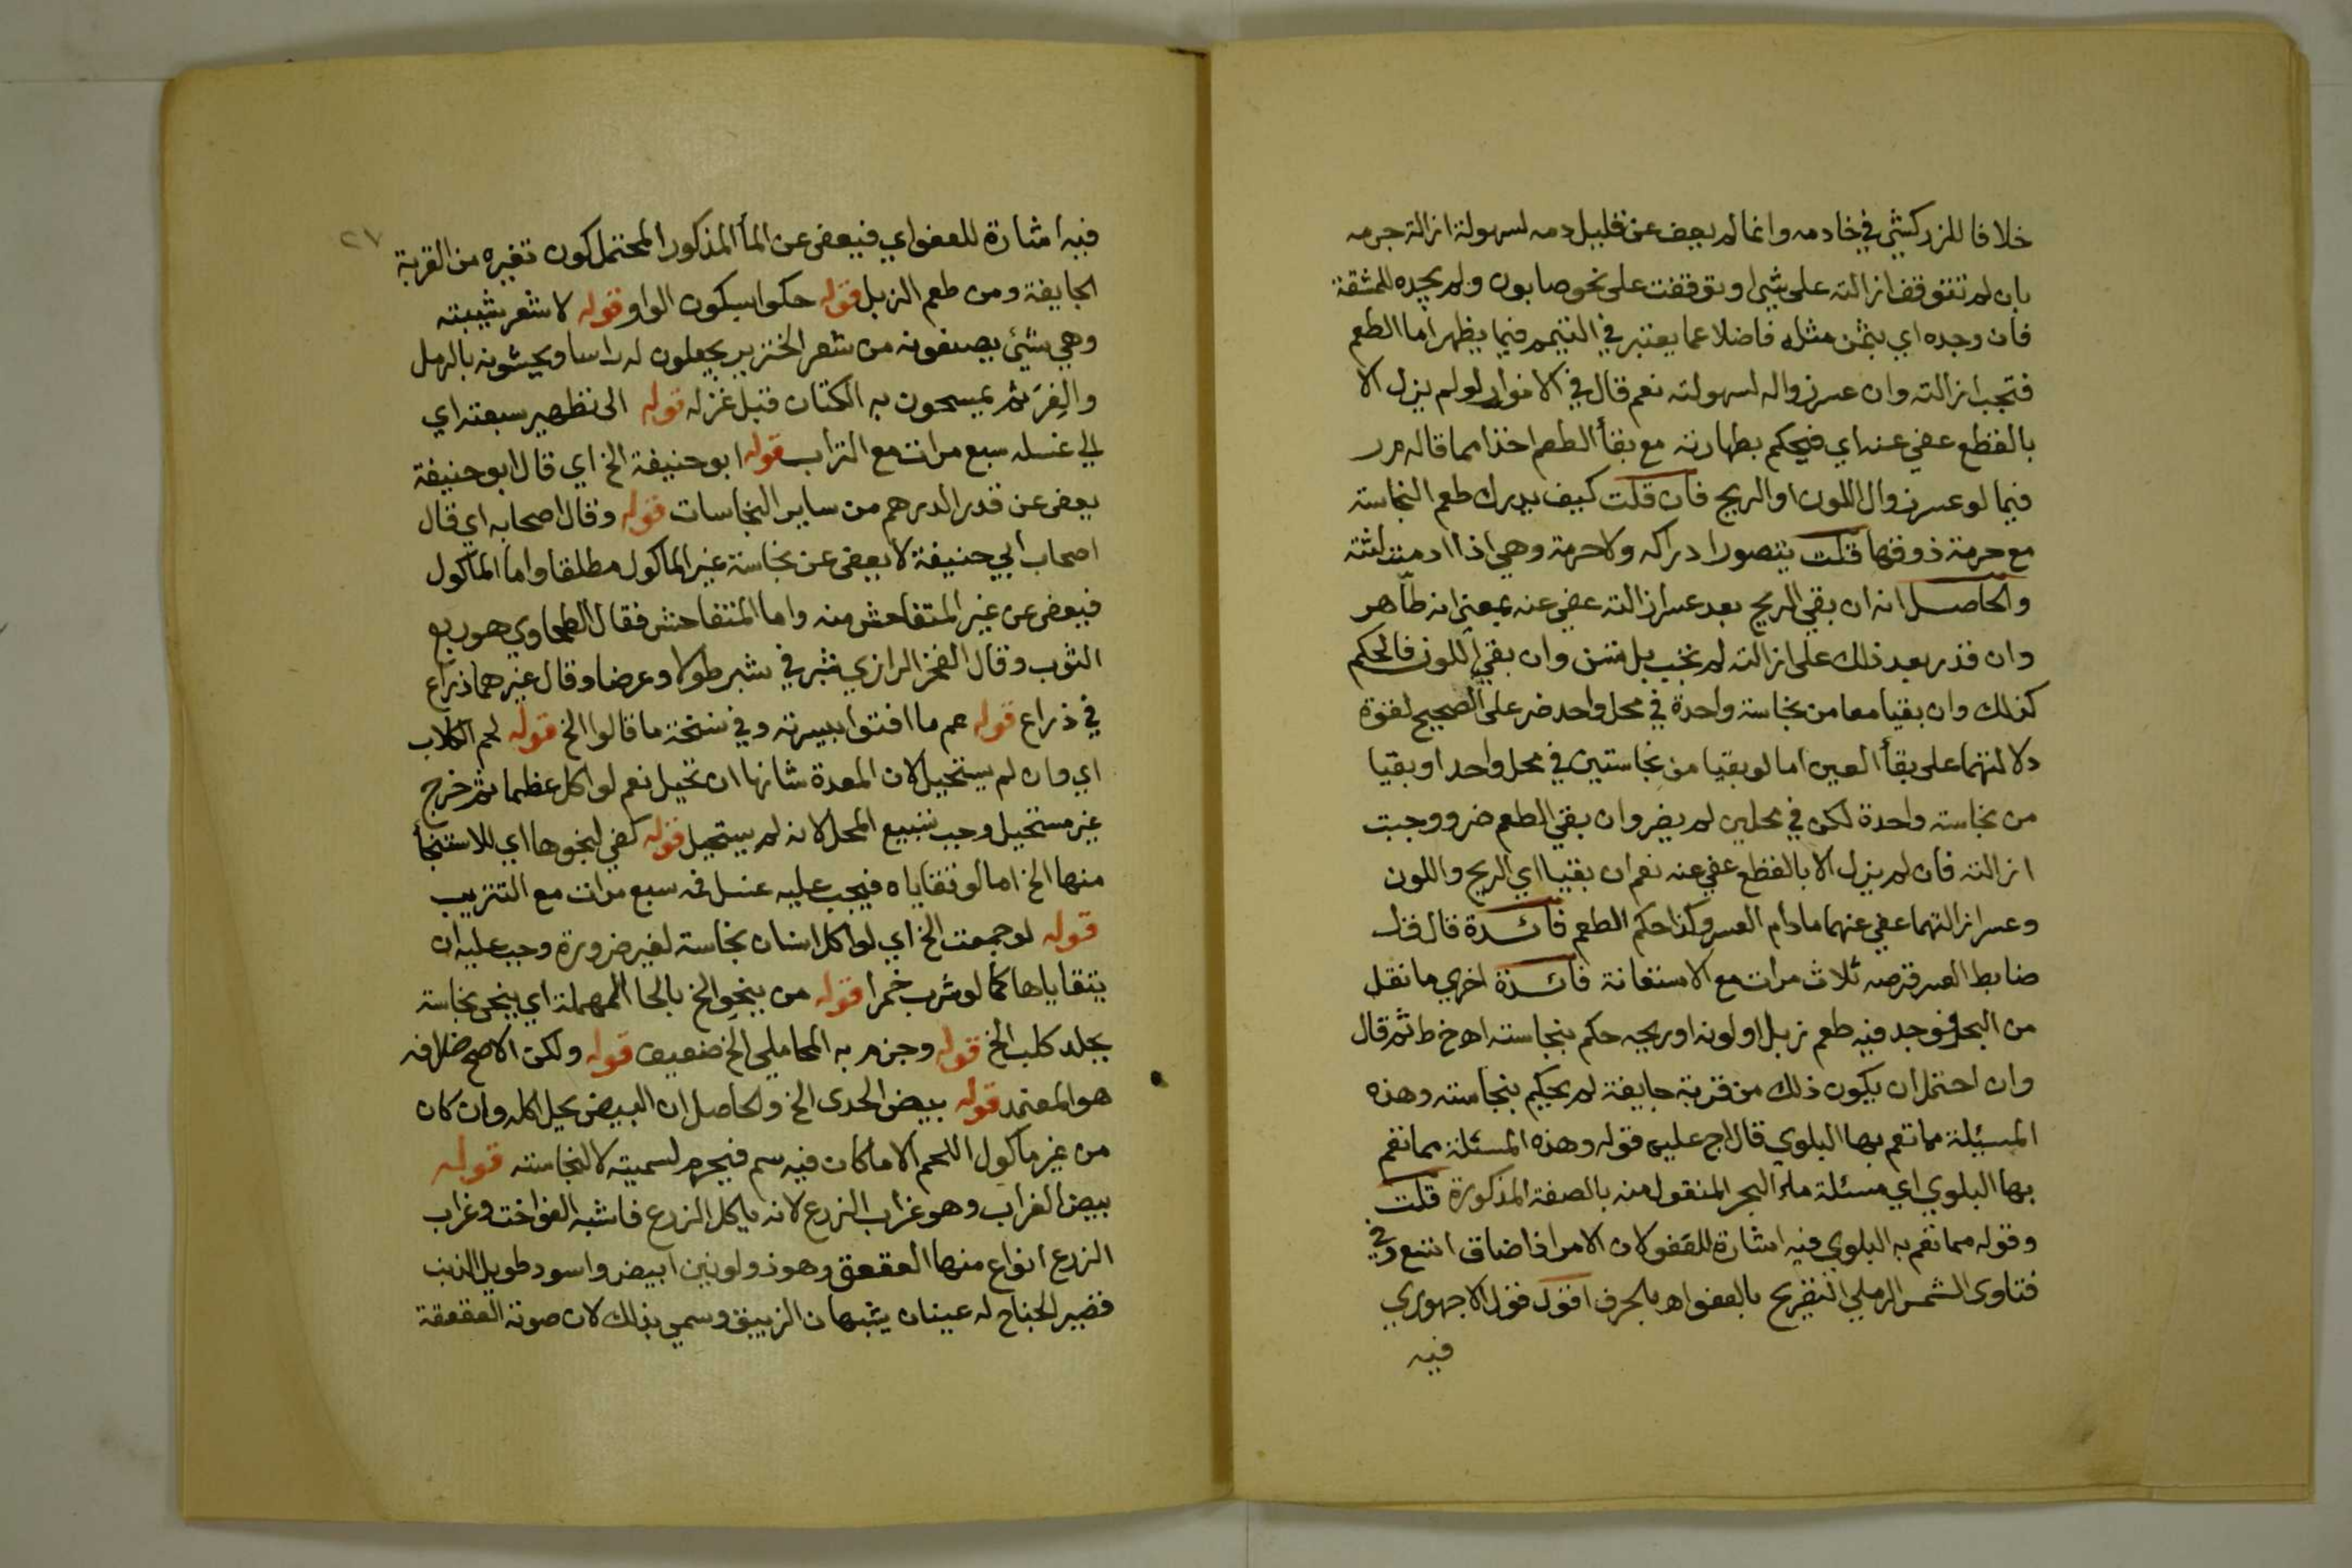 خلافا للزركشي في خادمه وانما لم يعف عن قليل دمه لسهولة ازالة جرمه
بان لم تتوقف ازالته على شي او توقفت على نحو صابون ولم يجده للمشقة
فان وجده اي بثمن مثله فاضلا عما يعتبر في التيمم فيما يظهر اما الطعم
فتجب ازالته وان عسر زواله لسهولته نعم قال في الانوار لو لم يزل الا
بالقطع عفي عنه اي فيحكم بطهارته مع بقأ الطعم اخذا مما قاله م ر
فيما لو عسر زوال اللون او الريح فان قلت كيف يدرك طعم النجاسة
مع حرمة ذوقها قلت يتصور ادراكه ولا حرمة وهي اذا ادميت لثته
والحاصل انه ان بقي الريح بعد عسر ازالته عفي عنه بمعني انه طاهر
وان قدر بعد ذلك على ازالته لم تجب بل تسن وان بقي اللون فالحكم
كذلك وان بقيا معا من نجاسة واحدة في محل واحد ضر على الصحيح لقوة
دلالتهما على بقأ العين اما لو بقيا من نجاستين في محل واحد او بقيا
من نجاسة واحدة لكن في محلين لم يضر وان بقي الطعم ضر ووجبت
ازالته فان لم يزل الا بالقطع عفي عنه نعم ان بقيا اي الريح واللون
وعسر ازالتهما عفي عنهما مادام العسر وكذا حكم الطعم فائدة قال ق ل
ضابط العسر قرصه ثلاث مرات مع الاستعانة فائدة اخري ما نقل
من البحر فوجد فيه طعم زبل او لونه او ريحه حكم بنجاسته اه خ ط ثم قال
وان احتمل ان يكون ذلك من قربة جايفة لم يحكم بنجاسته وهذه
المسئلة مما تعم بها البلوي قال اج عليه قوله وهذه المسئلة مما تعم
بها البلوي اي مسئلة ماء البحر المنقول منه بالصفة المذكورة قلت
وقوله مما تعم به البلوي فيه اشارة للعفو لان الامر اذا ضاق اتسع وفي
فتاوى الشمس الرملي التصريح بالعفو اه بالحرف اقول قول الاجهوري
فيه
٢٧
فيه اشارة للعفو اي فيعفى عن المأ المذكور المحتمل كون تغيره من القربة
الجايفة ومن طعم الزبل قوله حكوا بسكون الواو قوله لا شعر شيبته
وهي شئ يصنعونه من شعر الخنزير يجعلون له راسا ويحشونه بالرمل
والفرَ ثم يمسحون به الكتان قبل غزله قوله الى تطهير سبعته اي
الي غسله سبع مرات مع التراب قوله ابو حنيفة الخ اي قال ابو حنيفة
يعفى عن قدر الدرهم من ساير النجاسات قوله وقال اصحابه اي قال
اصحاب ابي حنيفة لا يعفى عن نجاسة غير الماكول مطلقا واما الماكول
فيعفى عن غير المتفاحش منه واما المتفاحش فقال الطحاوي هو ربع
الثوب وقال الفخر الرازي شبر في شبر طولا وعرضا وقال غيرهما ذراع
في ذراع قوله عم ما افتوا بيسرته وفي نسخة ما قالوا الخ قوله لحم الكلاب
اي وان لم يستحيل لان المعدة شانها ان تحيل نعم لو اكل عظما ثم خرج
غير مستحيل وجب تسبيع المحل لانه لم يستحيل قوله كفي لنجوها اي للاستنجأ
منها الخ اما لو تقاياه فيجب عليه غسل فمه سبع مرات مع التتريب
قوله لو جمعت الخ اي لو اكل انسان نجاسة لغير ضرورة وجب عليه ان
يتقاياها كما لو شرب خمرا قوله من ينحو الخ بالحا المهملة اي ينحى نجاسة
بجلد كلب الخ قوله وجزم به المحاملي الخ ضعيف قوله ولكن الاصح خلافه
هو المعتمد قوله بيض الحدى الخ والحاصل ان البيض يحل اكله وان كان
من غير ماكول اللحم الا ما كان فيه سم فيحرم لسميته لا لنجاسته قوله
بيض الغراب وهو غراب الزرع لانه ياكل الزرع فاشبه الفواخت وغراب
الزرع انواع منها العقعق وهو ذو لونين ابيض واسود طويل الذنب
قصير الجناح له عينان يشبهان الزيبق وسمي بذلك لان صوته العقعقة